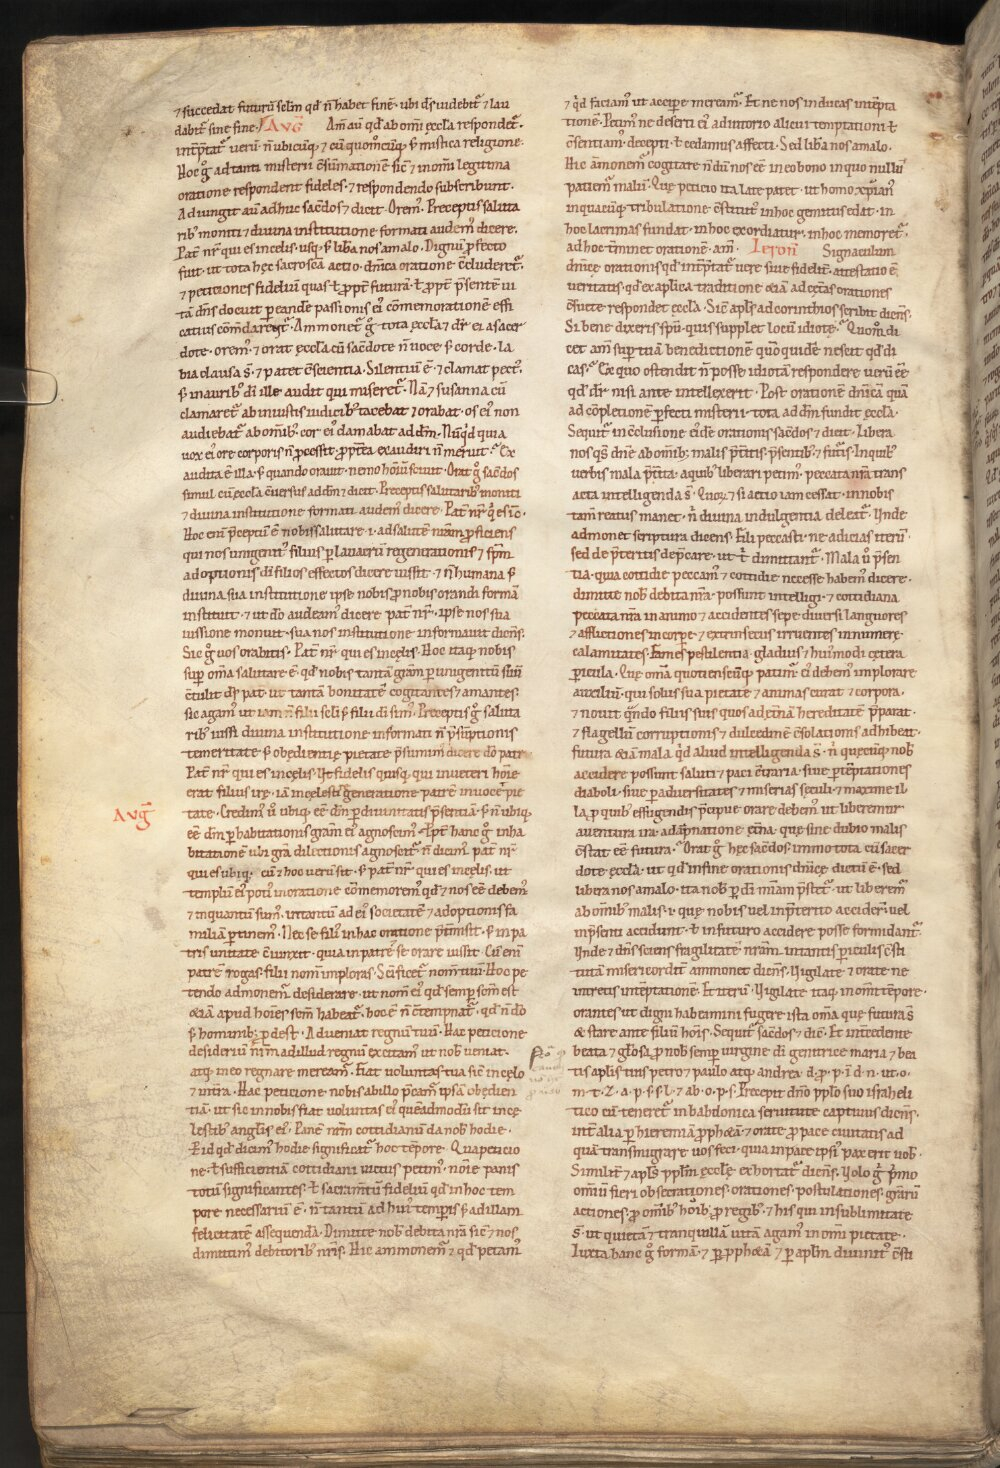 ⁊ succedat futurū sclm qd n̄ habet finē· ubi ds̄ uidebit᷑ ⁊ lau
dabit᷑ sine fine· AVG̃ Am̄ aū qd ab omi ęccła respondet᷑·
int̄p̄tat᷑ uerū n̄ ubicūq; ⁊ cū quomcūq; s; mistica religione·
Hoc g̊ ad tanti misterii c̄sūmationē sic̄ ⁊ in omi legitima
oratione respondent fideles· ⁊ respondendo subscribunt·
Adiungit aū adhuc sacdos ⁊ dicit· Orem᷒· Preceptis saluta
rib᷒ moniti ⁊ diuina institutione formati audem᷒ dicere·
Pat̄ nr̄ qui es in celis· usq; s; lib̄a nos a malo· Dignū p̱fecto
fuit· ut tota hęc sacrosc̄a actio· dn̄ica oratione c̄cluderet᷑·
⁊ petitiones fidelium quas ł ꝓpt̄ futurā· ł ꝓpt̄ p̄sentē ui
tā dn̄s docuit p eandē passionis ei᷒ cōmemorationē effi
catius com̄darent᷑· Ammonet᷑ g̊ tota ęccła ⁊ dr̄ ei a sacer
dote· orem᷒· ⁊ orat ęccła cū sacdote n̄ uoce s; corde· la
bia clausa s̄· ⁊ patet c̄scientia· Silentiū ē· ⁊ clamat pect᷒·
s; in aurib᷒ di ille audit qui miseret᷑· Nā ⁊ susanna cū
clamaret᷑ ab iniustis iudicib᷒ tacebat ⁊ orabat· os ei᷒ non
audiebat᷑ ab omib᷒· cor ei᷒ clamabat ad dm̄· Nūqd quia
uox ei᷒ ore corporis n̄ ꝓcessit ꝓpt̄ea exaudiri n̄ meruit· Ex
audita ē illa· s; quando orauit· nemo hoīū sciuit· Orat g̊ sacdos
simul cū ęccła c̄uersus ad dm̄ ⁊ dicit· Preceptis salutarib᷒ moniti
⁊ diuina institutione formati audem᷒ dicere· Pat̄ nr̄ q es ī c·
Hoc eni p̄ceptū ē nobis salutare· i· ad salutē nram̄ ꝓficiens
qui nos unigenit᷒ filius p lauacrū regenerationis ⁊ spm̄
adoptionis di filios effectos dicere iussit· ⁊ n̄ humana s;
diuina sua institutione ipse nobis ꝓ nobis orandi formā
instituit· ⁊ ut dō audeam᷒ dicere pat̄ nr̄· ipse nos sua
iussione monuit· sua nos institutione informauit dicens·
Sic g̊ uos orabitis· Pat̄ nr̄· qui es in cęlis· Hoc itaq; nobis
sup omīa salutare ē· qd nobis tantā grām p unigenitū suū
c̄tulit ds̄ pat̄· ut tantā bonitatē cogitantes ⁊ amantes
sic agam᷒ ut iam n̄ filii scli s; filii di sim᷒· Preceptis g̊ saluta
rib᷒ iussi diuina institutione informati n̄ p̄sūptionis
temeritate s; obędientię pietate p̄sumim᷒ dicere dō patri
Pat̄ nr̄ qui es in cęlis· Ut fidelis quisq; qui in ueteri hoīe
erat filius irę· iā in cęlesti generatione patrē inuocet pie
AVG̃
tate· Credim᷒ ū ubiq; eē dm̄ p diuinitatis p̄sentiā· s; n̄ ubiq;
eē dm̄ p habitationis gram̄ ei᷒ agnoscim᷒· Ppt̄ hanc g̊ inha
bitationē ubi gra dilectionis agnoscit᷑ n̄ dicim᷒ pat̄ nr̄
qui es ubiq;· cū ⁊ hoc uerū sit· s; pat̄ nr̄ qui es in cęlis· ut
templū ei᷒ poti᷒ in oratione cōmemorem᷒ qd ⁊ nos eē debem᷒
⁊ inquantū sum᷒· intantū ad ei᷒ societatē ⁊ adoptionis fa
miliā ptinem᷒· Nec se filii᷒ in hac oratione p̄tmisit· s; in pa
tris unitate c̄iunxit· quia in patrē se orare iussit· Cū eni
patrē rogas· filii nom̄ imploras· Sc̄ificet᷑ nom̄ tuū· Hoc pe
tendo admonem᷒ desiderare· ut nom̄ ei᷒ qd semp sc̄m est
&iā apud hoīes sc̄m habeat᷑· hoc ē n̄ c̄tempnat᷑· qd n̄ dō
s; hominib᷒ ꝓdest· Adueniat regnū tuū· Hac peticione
desideriū nrm̄ ad illud regnū excitam᷒ ut nob᷒ ueniat·
atq; in eo regnare meream᷒· Fiat uoluntas tua sic̄ in cęlo
⁊ in tr̄a· Hac peticione nobis ab illo p̄cam᷒ ipsā obędien
tiā· ut sic in nobis fiat uoluntas ei᷒ quēadmodū fit in cę
lestib᷒ angłis ei᷒· Panē nrm̄ cottidianū da nob hodie·
Et id qd dicim᷒ hodie significat᷑ hoc tēpore· Qua peticio
ne· ł sufficientiā cottidiani uictus petim᷒· noīe panis
totū significantes· ł sacram̄tū fidelium qd in hoc tem
pore necessariū ē· n̄ tantū ad hui᷒ temp̱is s; ad illam
felicitatē assequendā· Dimitte nob debita nr̄a sic̄ ⁊ nos
dimittim᷒ debitorib᷒ nr̄is· Hic ammonem᷒ ⁊ qd petam᷒
⁊ qd faciam᷒ ut accip̱e meream᷒· Et ne nos inducas in tēpta
tionē· Petim᷒ ne deserti ei᷒ adiutorio alicui temptationi ł
c̄sentiam᷒ decepti· ł cedamus affecti· Sed lib̄a nos a malo·
Hic āmonem᷒ cogitare n̄dū nos eē in eo bono in quo nullū
patiem᷒ malū· Quę peticio ita late patet· ut homo xp̄ian᷒
in quacūq; tribulatione c̄stitut᷒ in hoc gemitus edat· in
hoc lacrimas fundat· in hoc exordiatur· in hoc memoret᷑·
ad hoc t̄minet orationē· am̄· Ieron̄ Signaculum
dn̄icę orationis qd int̄p̄tat᷑ uere siue fidelit̄· attestatio ē
ueritatis· qd ex aplica traditione &iā ad cęt̄as orationes
c̄suete respondet ęccła· Sic̄ apls̄ ad corinthios scribit dicens·
Si bene dixeris spū· quis supplet locū idiotę· Quom̄ di
cet am̄ sup tuā benedictionē quō quidē nescit qd di
cas· Ex quo ostendit n̄ posse idiotā respondere uerū eē
qd dr̄ nisi ante intellexerit· Post orationē dn̄icā quā
ad cōpletionē p̱fecti misterii· tota ad dm̄ fundit ęccła·
Sequit᷑ in c̄clusione ei᷒dē orationis sacdos ⁊ dicit· Libera
nos qs̄ dn̄e ab omib᷒ malis p̄t̄itis· p̄sentib᷒ ⁊ fut᷒is· In quib᷒
uerbis mala p̄t̄ita· a quib᷒ liberari petim᷒· peccata nr̄a trans
acta intelligenda s̄· Quoꝝ ⁊ si actio iam cessat· in nobis
tam̄ reatus manet· n̄ diuina indulgentia deleat᷑· Unde
admonet scriptura dicens· Fili peccasti· ne adicias iterū·
sed de p̄teritis dep̄care· ut t̄ dimittant᷑· Mala ū p̄sen
tia· quia cottidie peccam᷒ ⁊ cottidie necesse habem᷒ dicere·
dimitte nob debita nr̄a· possunt intelligi· ⁊ cottidiana
peccata nr̄a in animo ⁊ accidentes sepe diuersi languores
⁊ afflictiones in corp̱e· ⁊ extrinsecus irruentes innumerę
calamitates· Fames pestilentia· gladius ⁊ hui᷒modi cętera
picula· Quę omīa quotienscūq; patim᷒· ei᷒ debem᷒ implorare
auxiliū· qui solus sua pietate ⁊ animas curat ⁊ corpora·
⁊ nouit qndo filiis suis quos ad ęt̄nā hereditatē p̄parat·
⁊ flagellū corruptionis ⁊ dulcedinē c̄solationis adhibeat·
futura &iā mala qd aliud intelligenda s̄· n̄ quęcūq; nob
accidere possunt saluti ⁊ paci c̄traria· siue p tēptationes
diaboli· siue p aduersitates ⁊ miserias sęculi· ⁊ maxime il
la p quib᷒ effugiendis p̄cipue orare debem᷒ ut liberemur
a uentura ira· a dāpnatione ęt̄na· quę sine dubio malis
c̄stat eē futura· Orat g̊ hęc sacdos· immo tota cū sacer
dote ęccła· ut qd in fine orationis dn̄icę dictū ē· sed
libera nos a malo· ita nob p di miam̄ p̄stet᷑· ut liberem᷒
ab omib᷒ malis· i· quę nobis uel in p̄terito accider̄· uel
in p̄senti accidunt· ł in futuro accidere posse formidant᷑·
Unde ⁊ dn̄s sciens fragilitatē nram̄· in tantis piculis c̄sti
tutā misericordit̄ ammonet dicens· Uigilate ⁊ orate ne
intretis in tēptationē· Et iterū· Uigilate itaq; in omi tēpore·
orantes ut digni habeamini fugere ista omīa quę futura s̄
& stare ante filiū hoīs· Sequit᷑ sacdos ⁊ dic̄· Et intercedente
beata ⁊ głosa ꝓ nob semp uirgine di genitrice maria ⁊ bea
tis aplis tuis petro ⁊ paulo atq; andrea· d· p· p· ī d· n· ut· o·
Precepit dn̄o pplo suo israheli
tico cū teneret᷑ in babilonica seruitute captiuus dicens·
int̄ alia p hieremiā ꝓph&ā· ⁊ orate ꝓ pace ciuitatis ad
quā transmigrare uos feci· quia in pace ipsi᷒ pax erit uob·
Similit̄ ⁊ apls̄ pplm̄ ęccłę exhortat᷑ dicens· Uolo g̊ p̄mo
omiū fieri obsecrationes· orationes· postulationes· grarū
actiones· ꝓ omib᷒ hoīb᷒· ꝓ regib᷒· ⁊ his qui in sublimitate
s̄· ut quietā ⁊ tranquillā uitā agam᷒ in omi pietate·
Iuxta hanc g̊ formā· ⁊ p ꝓph&ā ⁊ p aplm̄ diuinit᷒ c̄sti